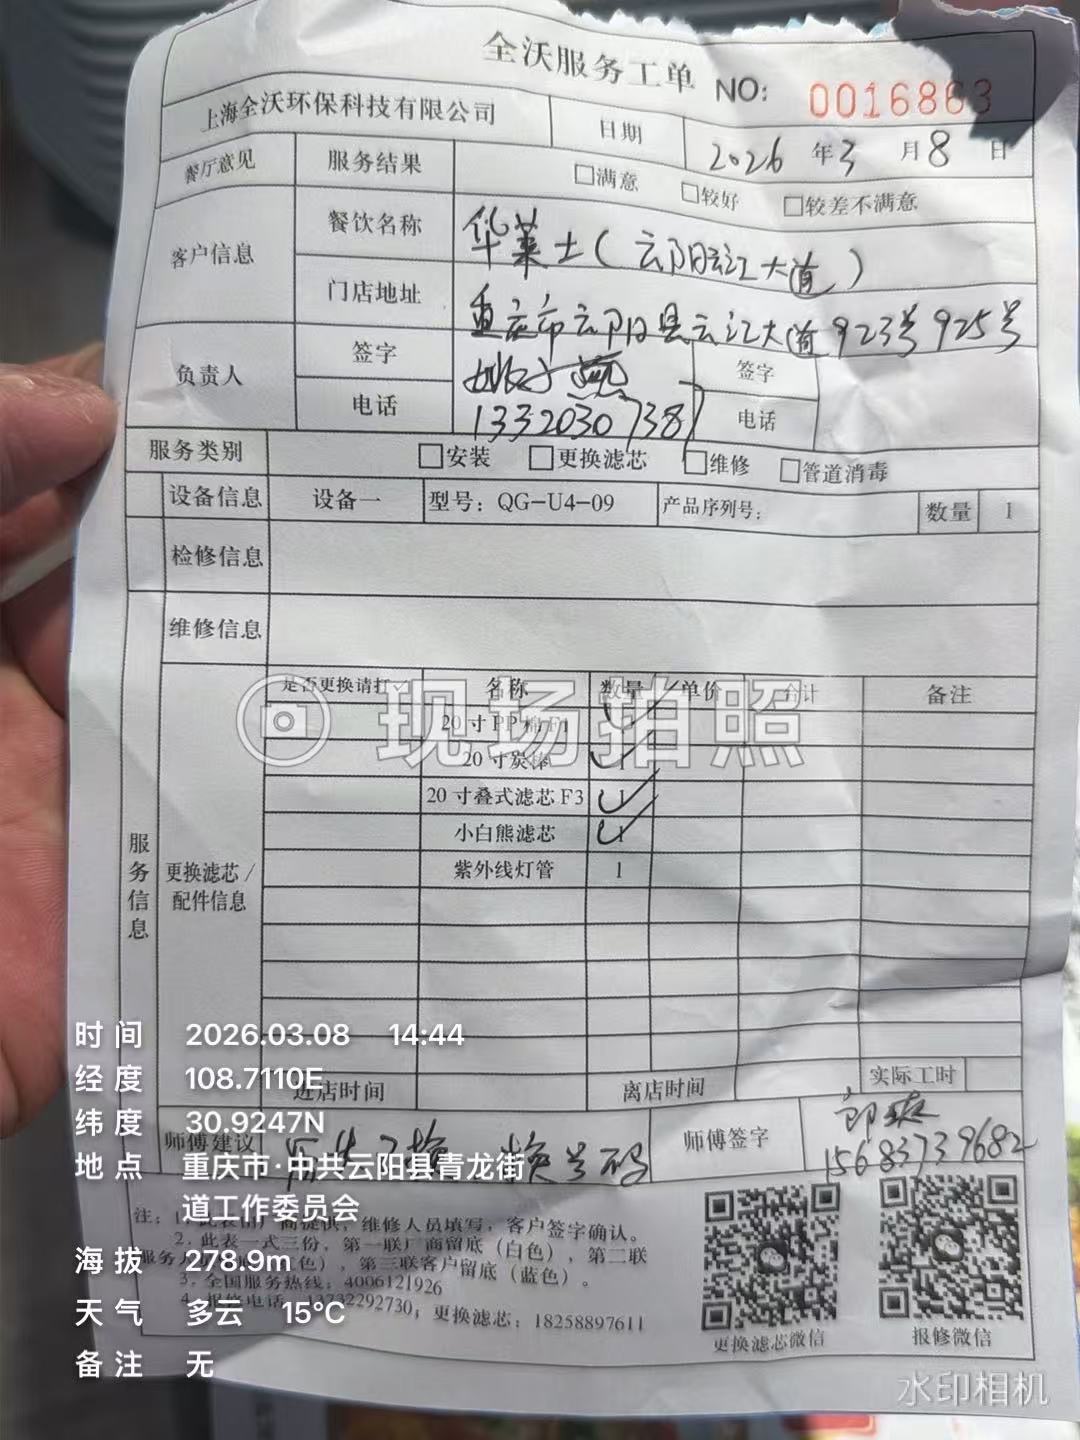 全沃服务工单 NO: 0016863
上海全沃环保科技有限公司 日期 2026 年 3 月 8 日
餐厅意见 服务结果 □满意 □较好 □较差不满意
客户信息 餐饮名称 华莱士(云阳云江大道)
门店地址 重庆市云阳县云江大道923号925号
负责人 签字 签字
电话 13320307387 电话
服务类别 □安装 □更换滤芯 □维修 □管道消毒
设备信息 设备一 型号：QG-U4-09 产品序列号： 数量 1
检修信息
维修信息
是否更换请打✓ 名称 数量 单价 合计 备注
20寸PP棉F1
20寸炭棒 1
20寸叠式滤芯F3 1
小白熊滤芯 1
紫外线灯管 1
服务信息
更换滤芯/
配件信息
进店时间 离店时间 实际工时
师傅建议 换号码 师傅签字 15683739682
注：1、此表由厂商提供，维修人员填写，客户签字确认。
2、此表一式三份，第一联厂商留底（白色），第二联
服务 （红色），第三联客户留底（蓝色）。
3、全国服务热线：4006121926
4、报修电话：13732292730；更换滤芯：18258897611
更换滤芯微信 报修微信
现场拍照
时间 2026.03.08 14:44
经度 108.7110E
纬度 30.9247N
地点 重庆市·中共云阳县青龙街
道工作委员会
海拔 278.9m
天气 多云 15℃
备注 无
水印相机